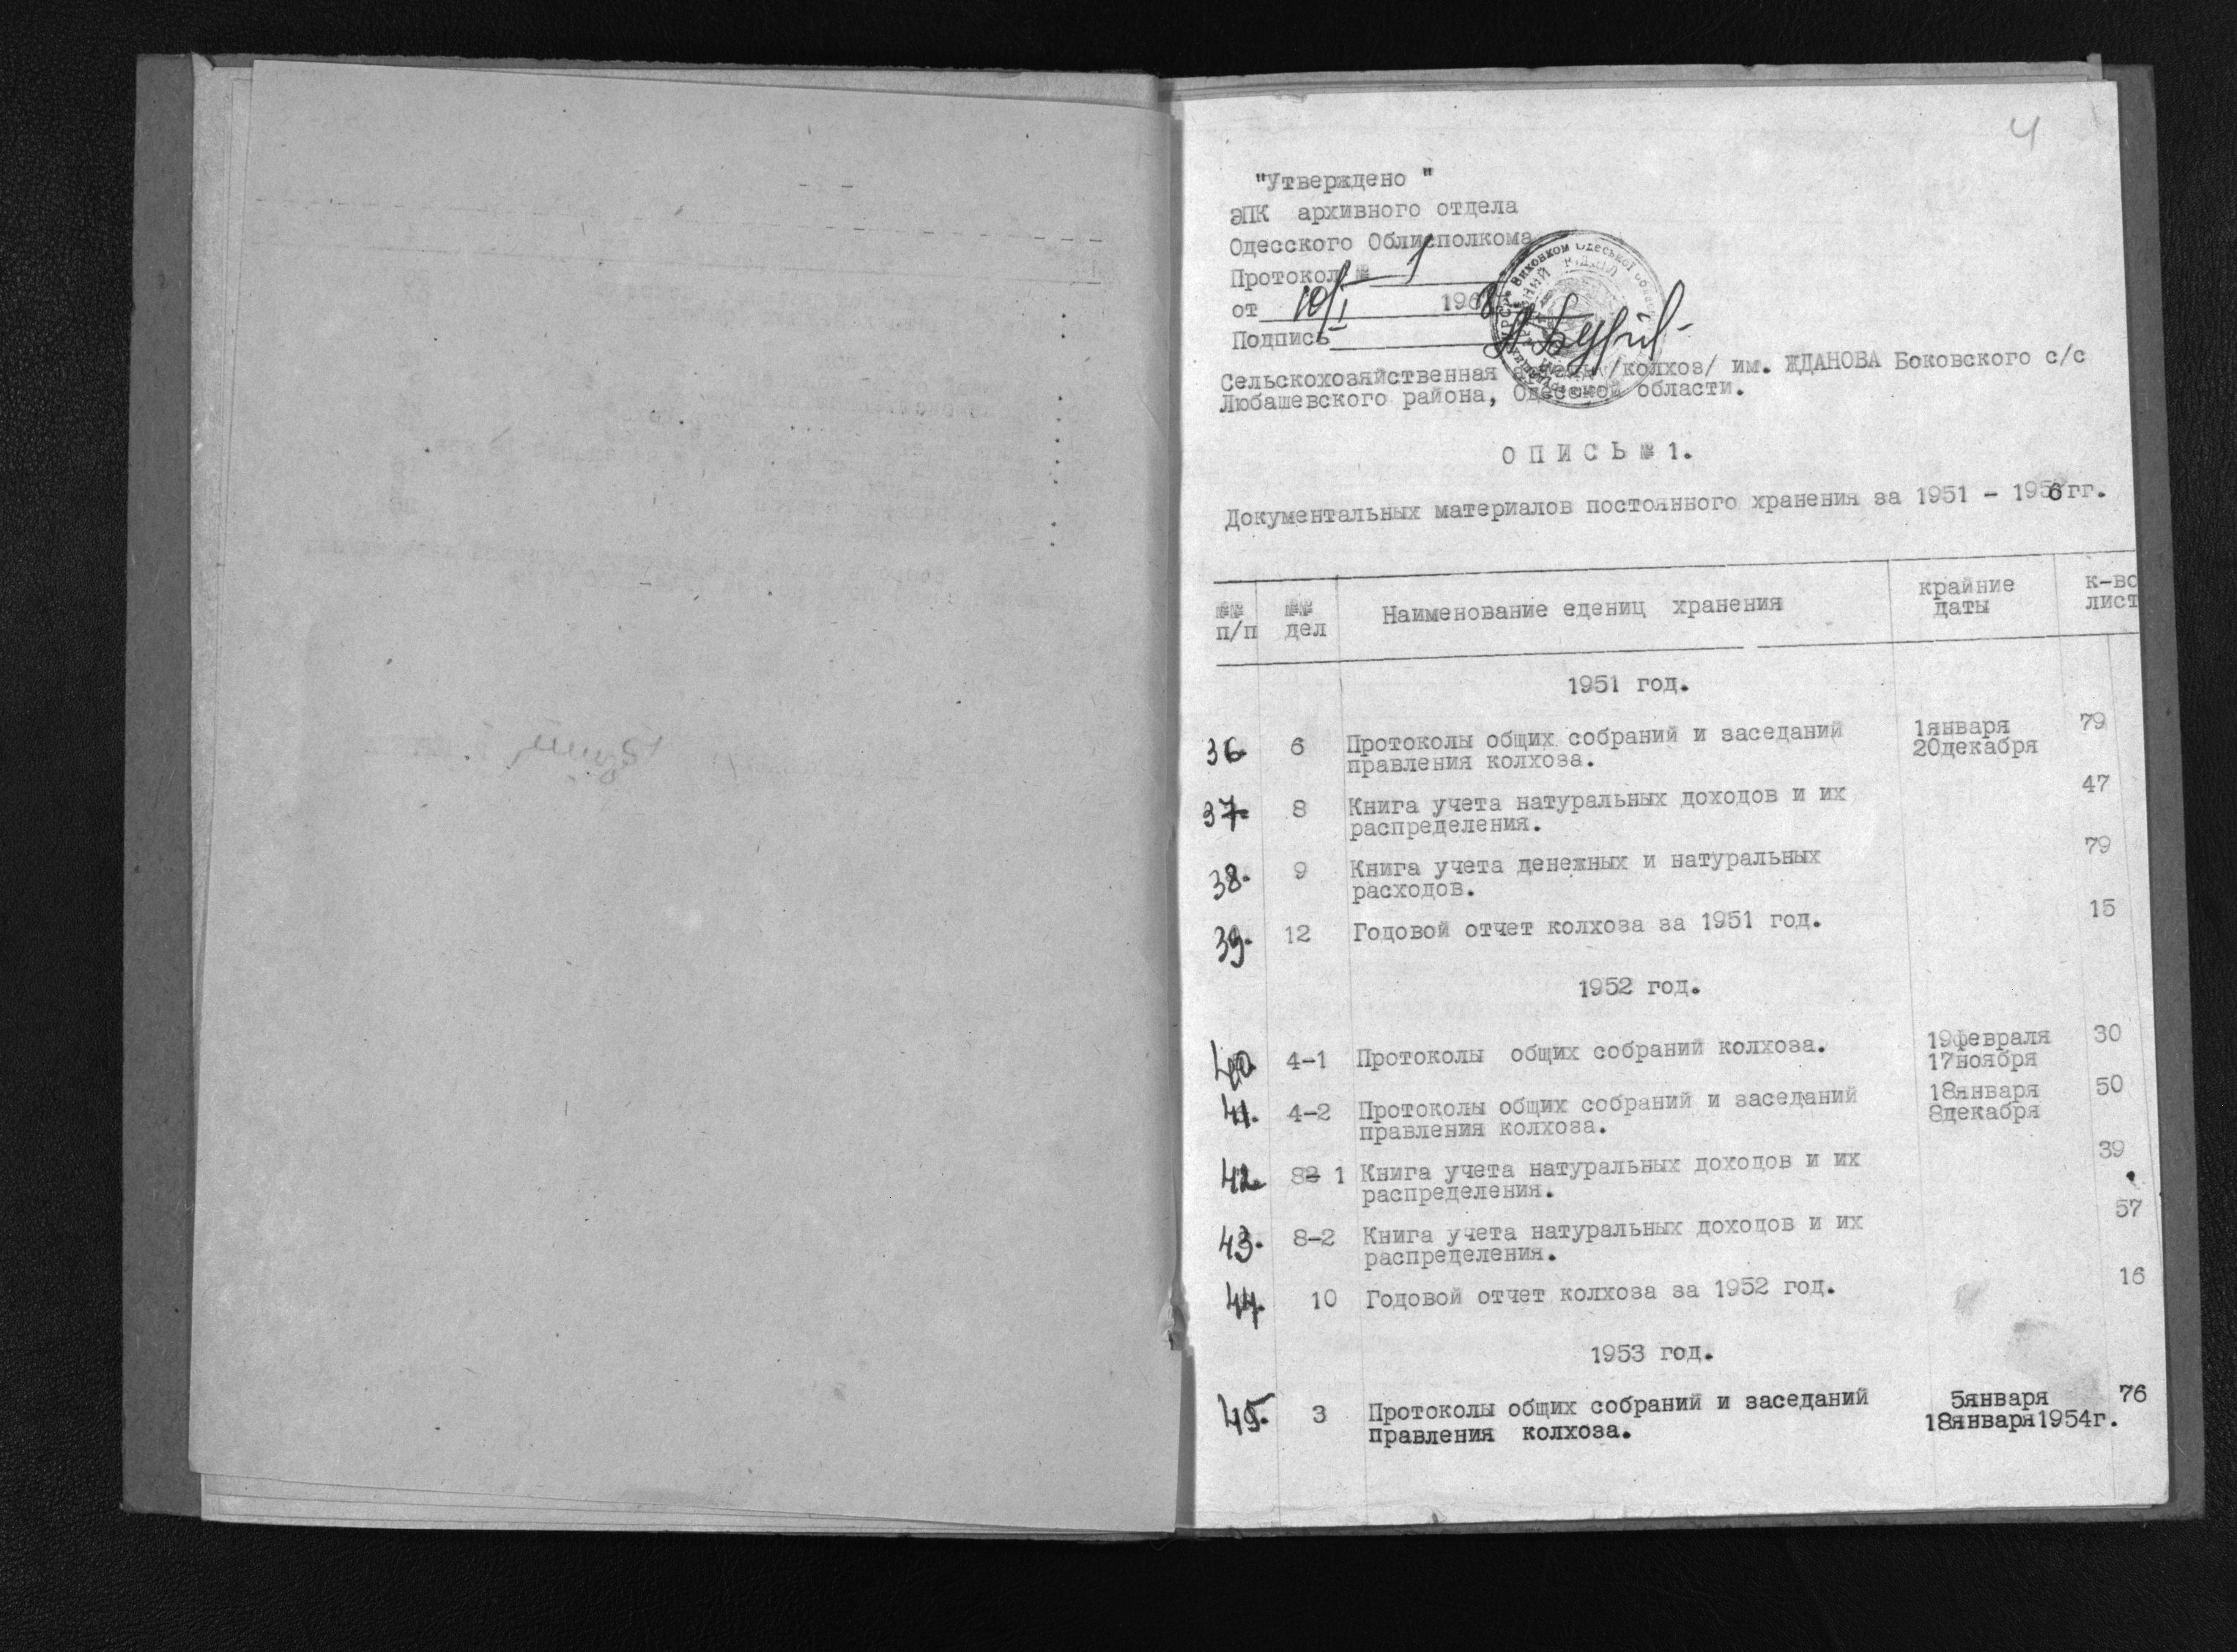 4
"Утверждено "
ЭПК архивного отдела
Одесского Облисполкома
Протокол № 1
от 10/I 1968
Подпись
Сельскохозяйственная артель /колхоз/ им. ЖДАНОВА Боковского с/с
Любашевского района, Одесской области.
О П И С Ь № 1.
Документальных материалов постоянного хранения за 1951 - 1956 гг.
№№ п/п №№ дел Наименование едениц хранения крайние даты к-во лист
1951 год.
36. 6 Протоколы общих собраний и заседаний 1января 79
правления колхоза. 20декабря
37. 8 Книга учета натуральных доходов и их 47
распределения.
38. 9 Книга учета денежных и натуральных 79
расходов.
39. 12 Годовой отчет колхоза за 1951 год. 15
1952 год.
40. 4-1 Протоколы общих собраний колхоза. 19февраля 30
17ноября
41. 4-2 Протоколы общих собраний и заседаний 18января 50
правления колхоза. 8декабря
42. 8 1 Книга учета натуральных доходов и их 39
распределения.
43. 8-2 Книга учета натуральных доходов и их 57
распределения.
44. 10 Годовой отчет колхоза за 1952 год. 16
1953 год.
45. 3 Протоколы общих собраний и заседаний 5января 76
правления колхоза. 18января1954г.